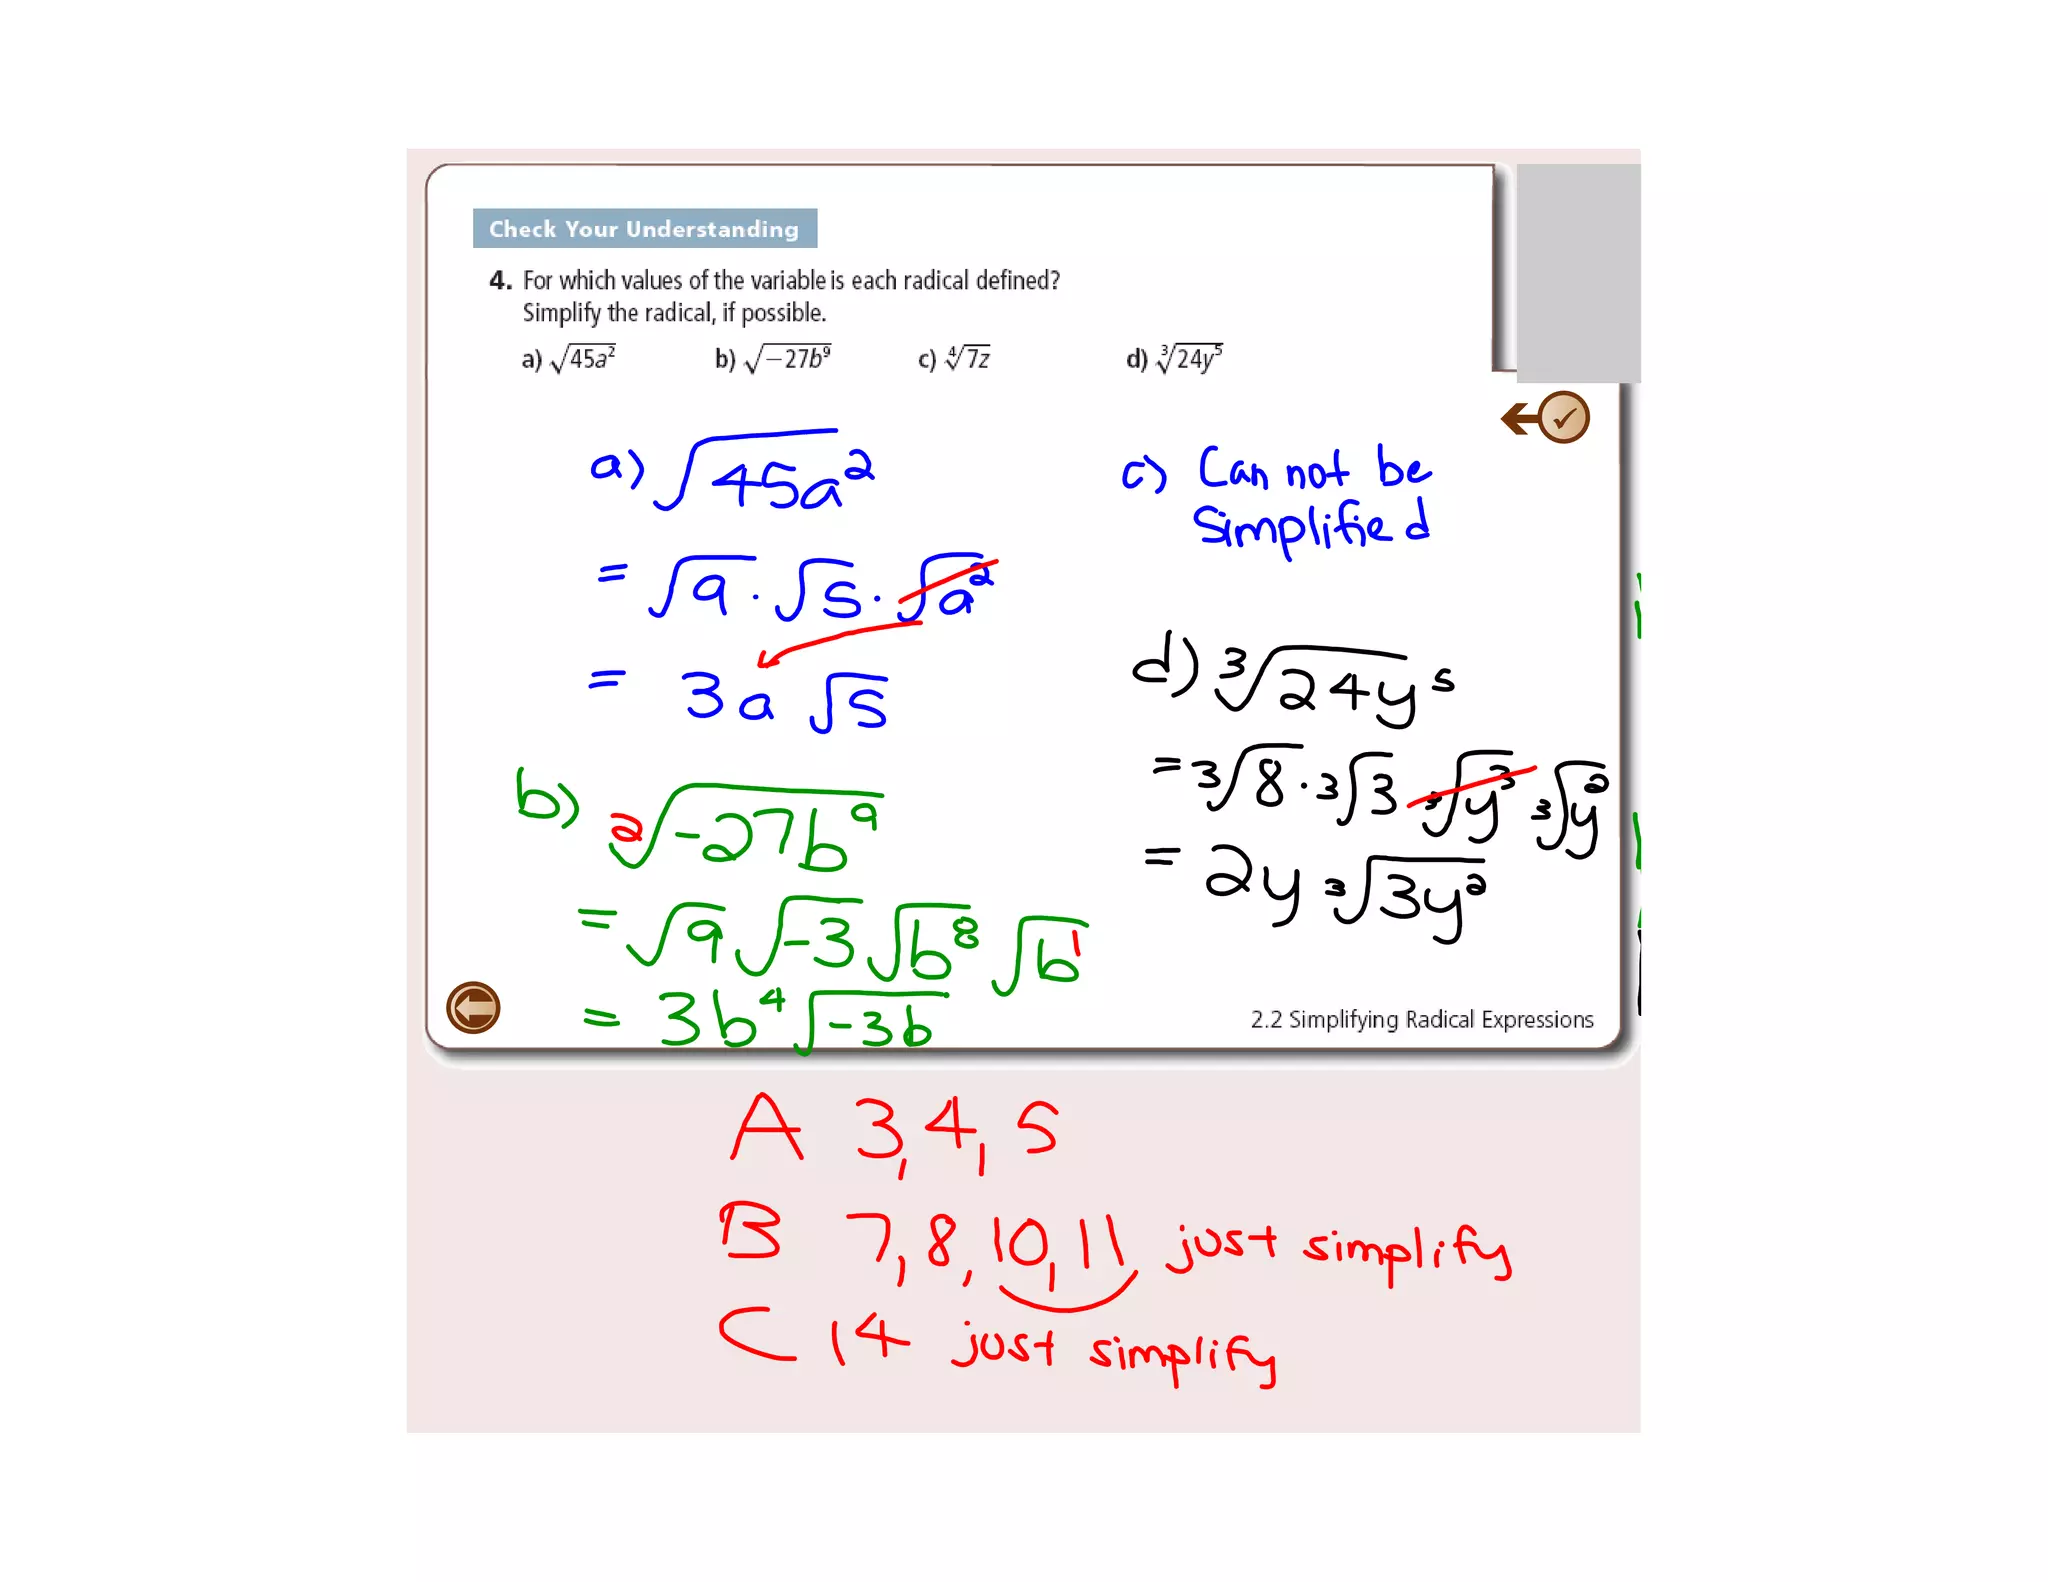 Check Your Understanding
4. For which values of the variable is each radical defined?
Simplify the radical, if possible.
a) √45a² b) √−27b⁹ c) ∜7z d) ∛24y⁵
a) √45a²
= √9 · √5 · √a²
= 3a √5
b) ²√-27b⁹
= √9 √-3 √b⁸ √b¹
= 3b⁴ √-3b
c) Can not be
Simplified
d) ³√24y⁵
= ³√8 · ³√3 ³√y³ ³√y²
= 2y ³√3y²
2.2 Simplifying Radical Expressions
A 3, 4, 5
B 7, 8, 10, 11 just simplify
C 14 just simplify